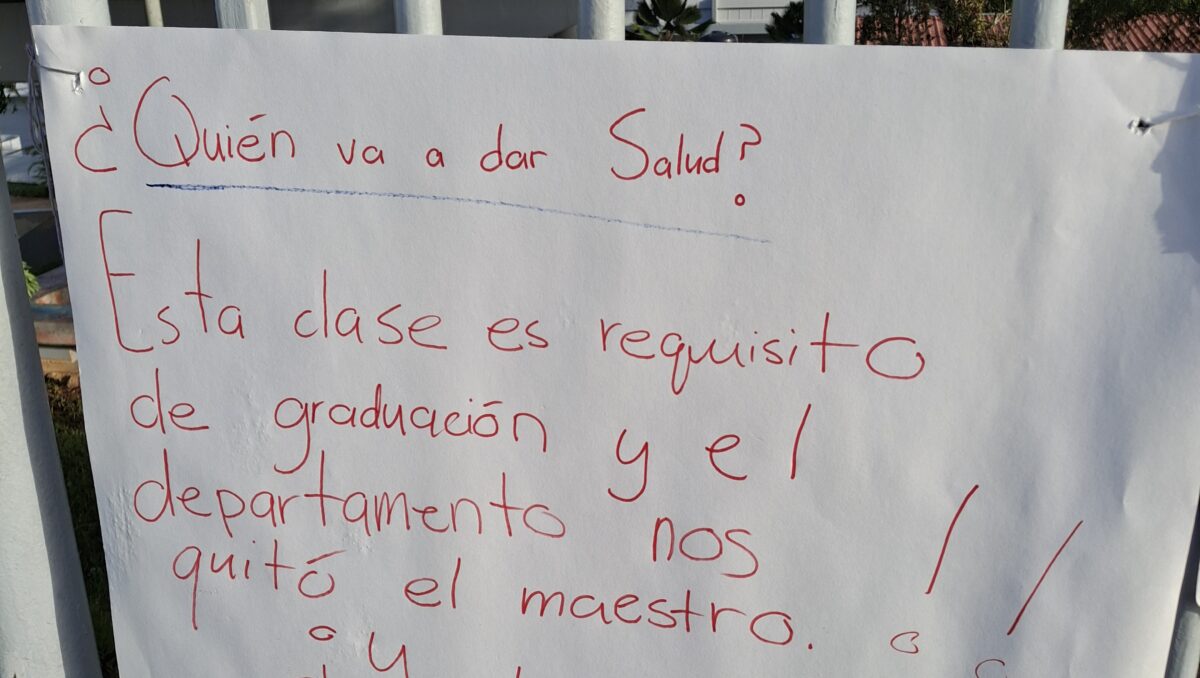 ¿Quién va a dar Salud?
Esta clase es requisito
de graduación y el
departamento nos
quitó el maestro. !!
¿Y